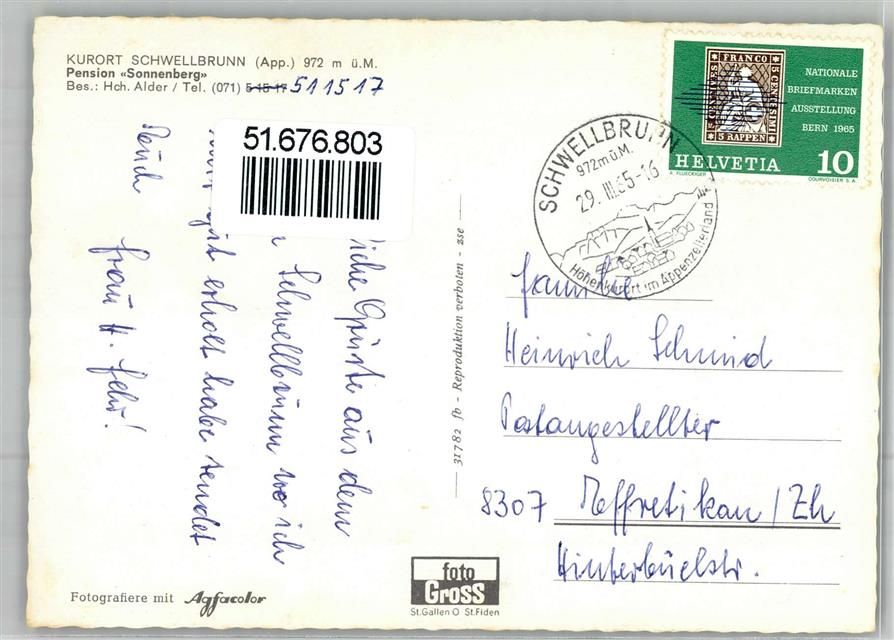 KURORT SCHWELLBRUNN (App.) 972 m ü.M.
Pension «Sonnenberg»
Bes.: Hch. Alder / Tel. (071) 5 15 17 511517
51.676.803
liche Grüsse aus dem
Schwellbrunn wo ich
gut erholt habe sendet
Euch
Frau H. Fehr!
31782 fb - Reproduktion verboten - zse
FRANCO
5 CENTESIMI
5 RAPPEN
5 CENTIMES
NATIONALE
BRIEFMARKEN
AUSSTELLUNG
BERN 1965
HELVETIA 10
A. FLUECKIGER
COURVOISIER S.A.
SCHWELLBRUNN
972 m ü.M.
29. III. 65-16
Höhenkurort im Appenzellerland
Familie
Heinrich Schmid
Postangestellter
8307 Effretikon / Zh
Hinterbüelstr.
Fotografiere mit Agfacolor
foto
Gross
St.Gallen O St.Fiden